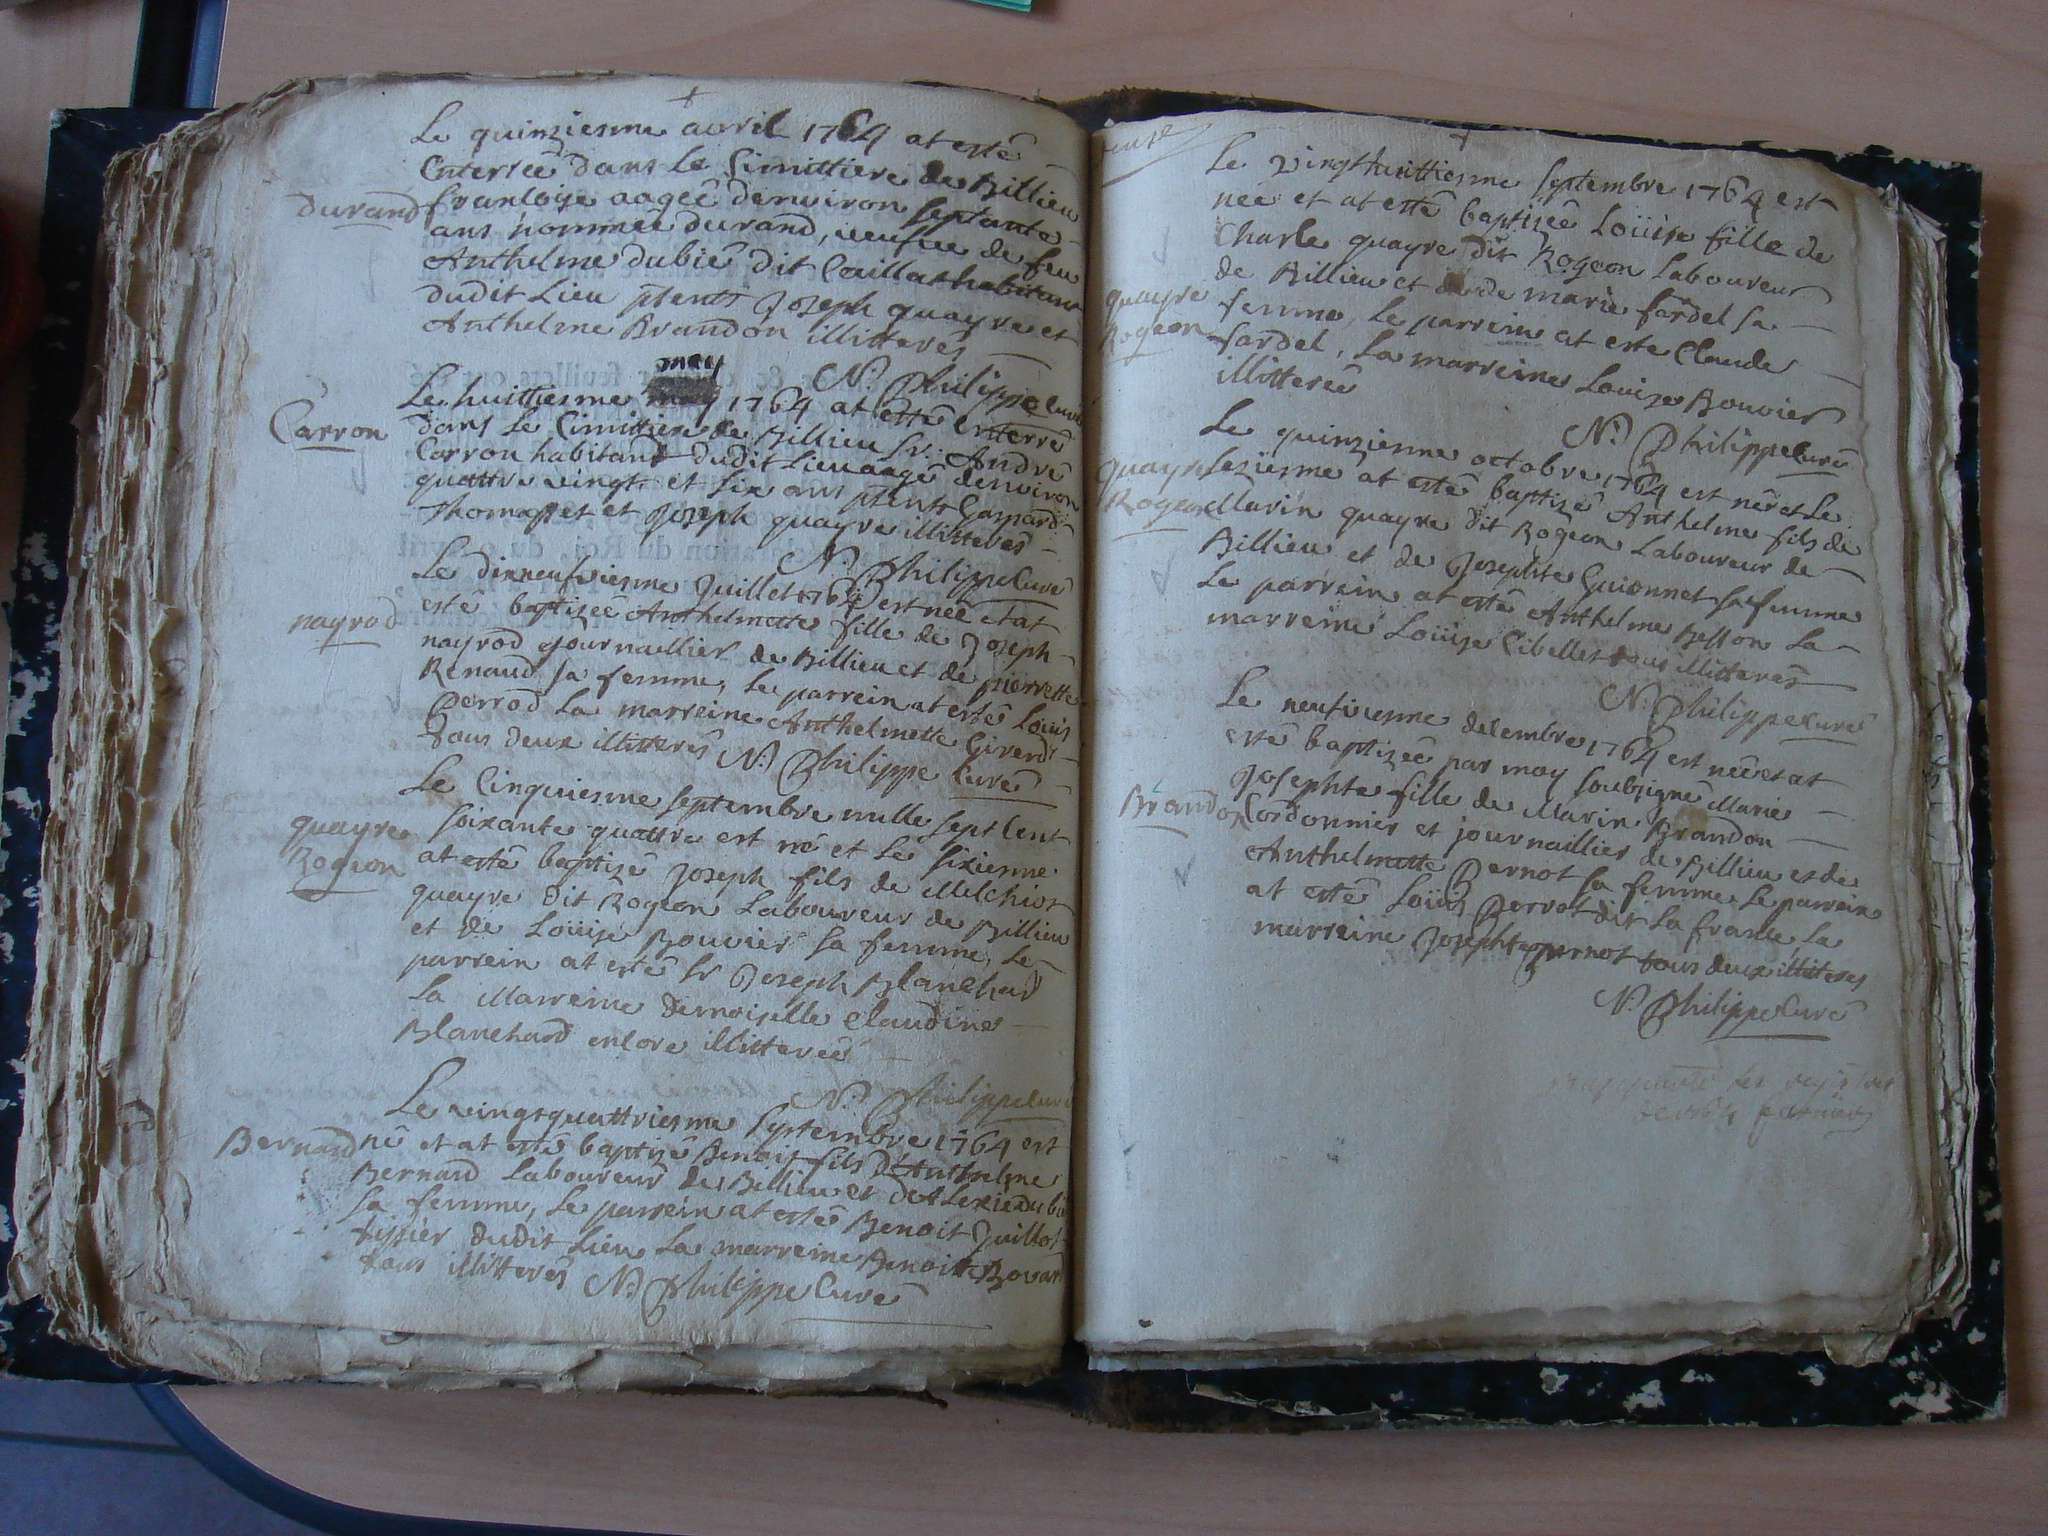 Le quinziesme avril 1764 at esté
Enterreé dans le Cimittiere de Billieu
durand
francoise aageé denviron septante
ans nommeé durand, veufve de feu
Anthelme dubié dit Caillat habitant
dudit Lieu pñents Joseph quayre et
Anthelme Brandon illitterés
N. Philippe Curé
may
Le huittiesme may 1764 at esté Enterré
Carron
dans le Cimitiere de Billieu Sr. André
Carron habitant dudit Lieu aagé denviron
quattre vingt et six ans pñents Gaspard
Thomasset et Joseph quayre illitterés
N. Philippe Curé
Le dixneufviesme Juillet 1764 est neé et at
nayrod
esté baptizeé Anthelmette fille de Joseph
nayrod journaillier de Billieu et de pierrette
Renaud sa femme, Le parrein at esté Louis
Perrod La marreine Anthelmette Girerd
tous deux illitterés N. Philippe Curé
Le Cinquiesme septembre mille sept Cent
quayre
Rogeon
soixante quattre est né et le sixiesme
at esté baptizé Joseph fils de Melchiot
quayre dit Rogeon Laboureur de Billieu
et de Loüise Bouvier sa femme, Le
parrein at esté sr Joseph Blanchard
La Marreine demoiselle Claudine
Blanchard encore illitterée
N. Philippe Curé
Le vingtquattriesme Septembre 1764 est
Bernard
né et at esté baptizé Benoit fils d'Anthelme
Bernard Laboureur de Billieu et d'Alexie du bié
sa femme, Le parrein at esté Benoit Juillot
tissier dudit Lieu La marreine Benoitte
tous illitterés N. Philippe Curé
Le vingthuittiesme septembre 1764 est
neé et at esté baptizeé Loüise fille de
Charle quayre dit Rogeon Laboureur
quayre
Rogeon
de Billieu et de marie fardel sa
femme, Le parrein at esté Claude
fardel, La marreine Louize Bouvier
illitterés
N. Philippe Curé
Le quinziesme octobre 1764 est né et Le
quayre
Rogeon
seziesme at esté baptizé Anthelme fils de
Marin quayre dit Rogeon Laboureur de
Billieu et de Josephte Guionnet sa femme
Le parrein at esté Anthelme Besson La
marreine Loüise Cibellet tous illitterés
N. Philippe Curé
Le neufviesme decembre 1764 est neé et at
esté baptizeé par moy soubsigné Marie
Brandon
Josephte fille de Marin Brandon
Cordonnier et journaillier de Billieu et de
Anthelmette Pernot sa femme Le parrein
at esté Loüis Perrot dit La france La
marreine Josephte pernot tous deux illiteres
N. Philippe Curé